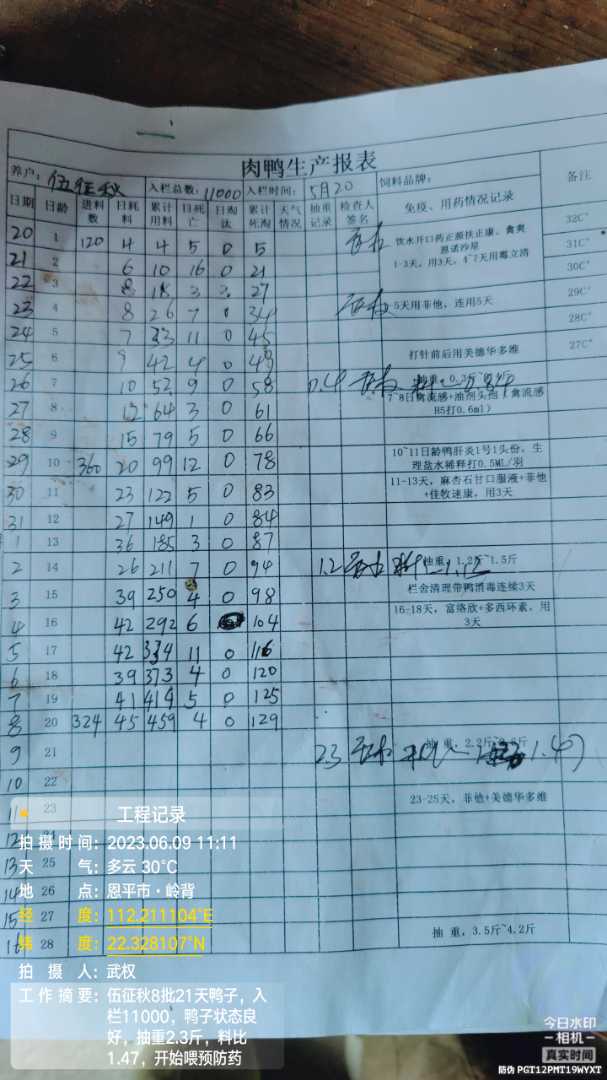 肉鸭生产报表
养户: 伍征秋 入栏总数: 11000 入栏时间: 5月20 饲料品牌: 备注
日期 日龄 进料数 日耗料 累计用料 日死亡 日淘汰 累计死淘 天气情况 抽重记录 检查人签名 免疫、用药情况记录
20 1 120 4 4 5 0 5 饮水开口药正源扶正康、禽爽 32C°
21 2 6 10 16 0 21 1-3天，用3天，4~7天用毒立清 31C°
22 3 8 18 3 3 27 30C°
23 4 8 26 7 0 34 5天用菲他，连用5天 29C°
24 5 7 33 11 0 45 28C°
25 6 9 42 4 0 49 打针前后用美德华多维 27C°
26 7 10 52 9 0 58 0.4
27 8 12 64 3 0 61 H5打0.6ml）
28 9 15 79 5 0 66
29 10 360 20 99 12 0 78 10~11日龄鸭肝炎1号1头份，生理盐水稀释打0.5ML/羽
30 11 23 122 5 0 83 11-13天，麻杏石甘口服液+菲他+佳牧速康，用3天
31 12 27 149 1 0 84
1 13 36 185 3 0 87
2 14 26 211 7 0 94 1.2 抽重，1.2斤~1.5斤
3 15 39 250 4 0 98 栏舍清理带鸭消毒连续3天
4 16 42 292 6 104 16-18天，富络欣+多西环素，用3天
5 17 42 334 11 0 116
6 18 39 373 4 0 120
7 19 41 414 5 0 125
8 20 324 45 459 4 0 129
9 21 2.3 1.47
10 22
11 23 23-25天，菲他+美德华多维
12
13 25
14 26
15 27
16 28 抽重，3.5斤~4.2斤
工程记录
拍摄时间: 2023.06.09 11:11
天气: 多云 30℃
地点: 恩平市·岭背
经度: 112.211104°E
纬度: 22.328107°N
拍摄人: 武权
工作摘要: 伍征秋8批21天鸭子，入
栏11000，鸭子状态良
好，抽重2.3斤，料比
1.47，开始喂预防药
今日水印
-相机-
真实时间
防伪 PGT12PMT19WYXT